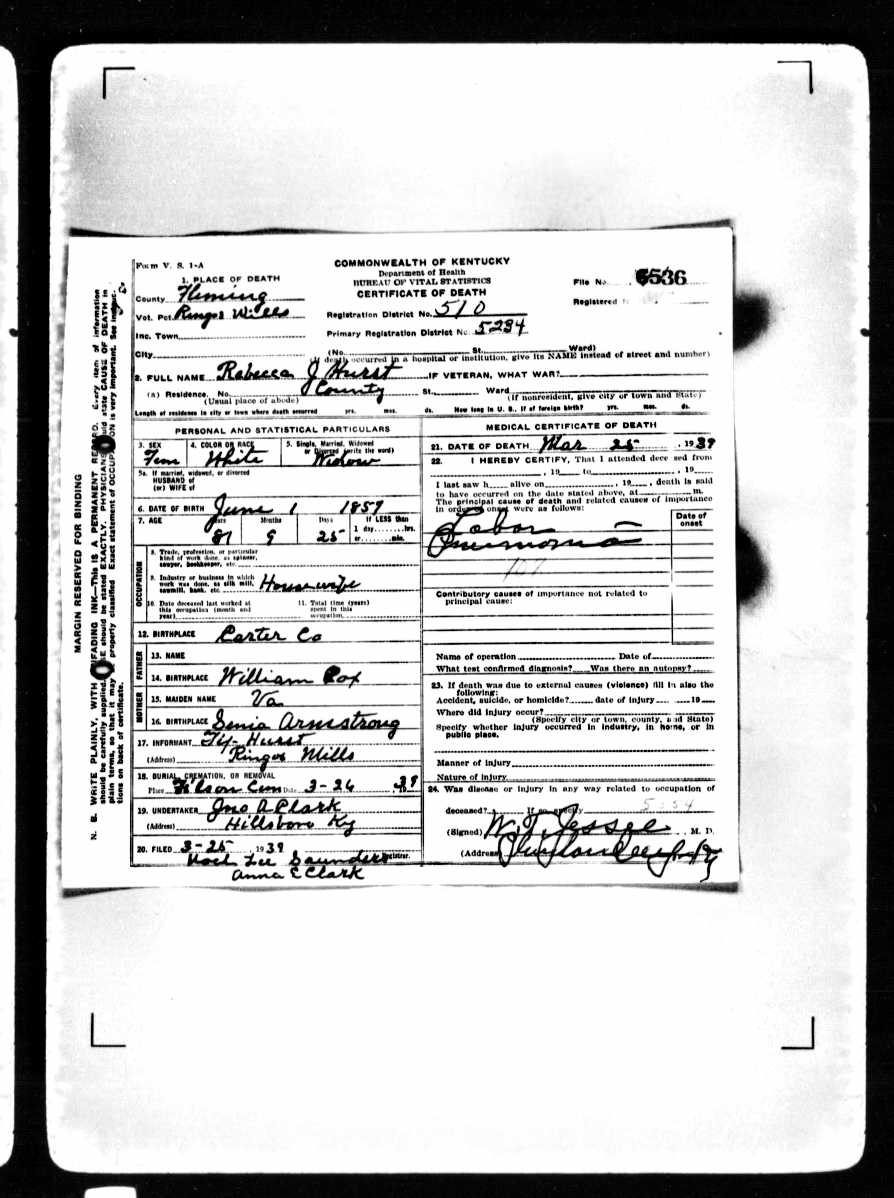 Form V. S. 1-A
COMMONWEALTH OF KENTUCKY
Department of Health
BUREAU OF VITAL STATISTICS
CERTIFICATE OF DEATH
File No. 6536
Registered
1. PLACE OF DEATH
County Fleming
Vot. Pct. Ringos Mills
Registration District No. 510
Inc. Town
Primary Registration District No. 5234
City (No. St. Ward)
(If death occurred in a hospital or institution, give its NAME instead of street and number)
2. FULL NAME Rabecca J Hurst IF VETERAN, WHAT WAR?
(a) Residence. No. County St. Ward
(Usual place of abode) (If nonresident, give city or town and State)
Length of residence in city or town where death occurred yrs. mos. ds. How long in U. S., if of foreign birth? yrs. mos. ds.
PERSONAL AND STATISTICAL PARTICULARS
3. SEX Fem
4. COLOR OR RACE White
5. Single, Married, Widowed or Divorced (write the word) Widow
5a. If married, widowed, or divorced
HUSBAND of
(or) WIFE of
6. DATE OF BIRTH June 1 1857
7. AGE Years Months Days If LESS than
81 9 25 1 day hrs.
or min.
OCCUPATION
8. Trade, profession, or particular
kind of work done, as spinner,
sawyer, bookkeeper, etc.
9. Industry or business in which
work was done, as silk mill,
sawmill, bank, etc. Housewife
10. Date deceased last worked at
this occupation (month and
year)
11. Total time (years)
spent in this
occupation
12. BIRTHPLACE Carter Co
FATHER
13. NAME
14. BIRTHPLACE William Cox
MOTHER
15. MAIDEN NAME Va
16. BIRTHPLACE Senia Armstrong
17. INFORMANT Hurst
(Address) Ringos Mills
18. BURIAL, CREMATION, OR REMOVAL
Place Filson Cem Date 3-26 39
19. UNDERTAKER Jno A Clark
(Address) Hillsboro Ky
20. FILED 3-25, 1939
Lee Saunders Registrar.
Anna E Clark
MEDICAL CERTIFICATE OF DEATH
21. DATE OF DEATH Mar 25, 1939
22. I HEREBY CERTIFY, That I attended deceased from
, 19 to , 19
I last saw h alive on , 19 , death is said
to have occurred on the date stated above, at m.
The principal cause of death and related causes of importance
in order of onset were as follows:
Date of
onset
Lobar
Pneumonia
107
Contributory causes of importance not related to
principal cause:
Name of operation Date of
What test confirmed diagnosis? Was there an autopsy?
23. If death was due to external causes (violence) fill in also the
following:
Accident, suicide, or homicide? date of injury 19
Where did injury occur?
(Specify city or town, county, and State)
Specify whether injury occurred in industry, in home, or in
public place.
Manner of injury
Nature of injury
24. Was disease or injury in any way related to occupation of
deceased? If so, specify
(Signed) M. D.
(Address)
MARGIN RESERVED FOR BINDING